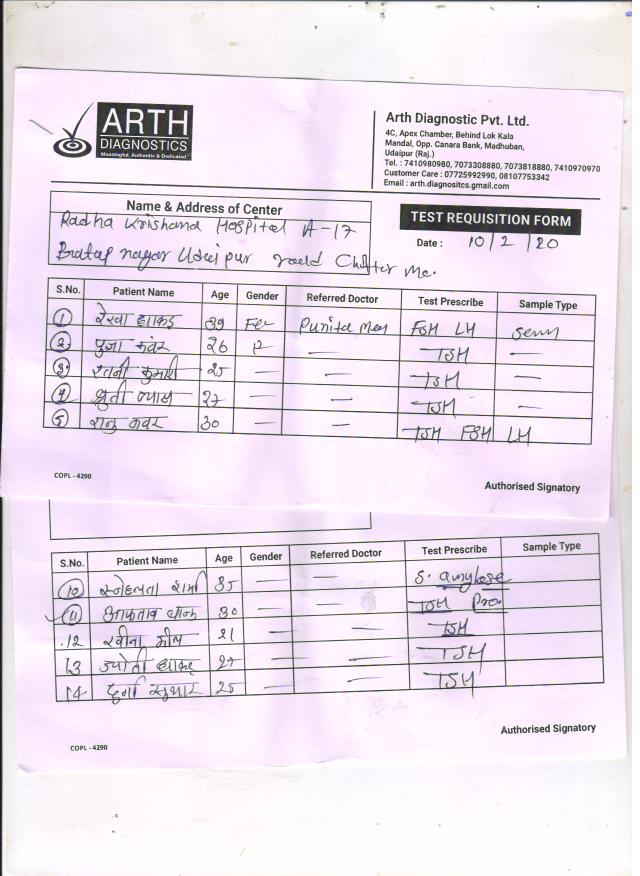 ARTH
DIAGNOSTICS
Meaningful, Authentic & Dedicated
Arth Diagnostic Pvt. Ltd.
4C, Apex Chamber, Behind Lok Kala
Mandal, Opp. Canara Bank, Madhuban,
Udaipur (Raj.)
Tel. : 7410980980, 7073308880, 7073818880, 7410970970
Customer Care : 07725992990, 08107753342
Email : arth.diagnositcs.gmail.com
Name & Address of Center
Radha Krishana Hospital A-17
TEST REQUISITION FORM
Date : 10/2/20
Bratap nagar Udaipur
S.No. Patient Name Age Gender Referred Doctor Test Prescribe Sample Type
1 रेखा धाकड़ 39 Fe Punita FSH LH
2 पुजा कंवर 26 — TSH —
3 कुमारी 25 — — TSH —
4 व्यास 27 — TSH —
5 कंवर 30 — — TSH FSH LH
COPL - 4290
Authorised Signatory
S.No. Patient Name Age Gender Referred Doctor Test Prescribe Sample Type
10 स्नेहलता शर्मा 35 — — S. amylase
11 बानु 30 — — TSH Pro.
12 रवीना 21 — — TSH
13 ज्योती धाकड़ 27 — — TSH
14 दुर्गा सुथार 25 — — TSH
Authorised Signatory
COPL - 4290